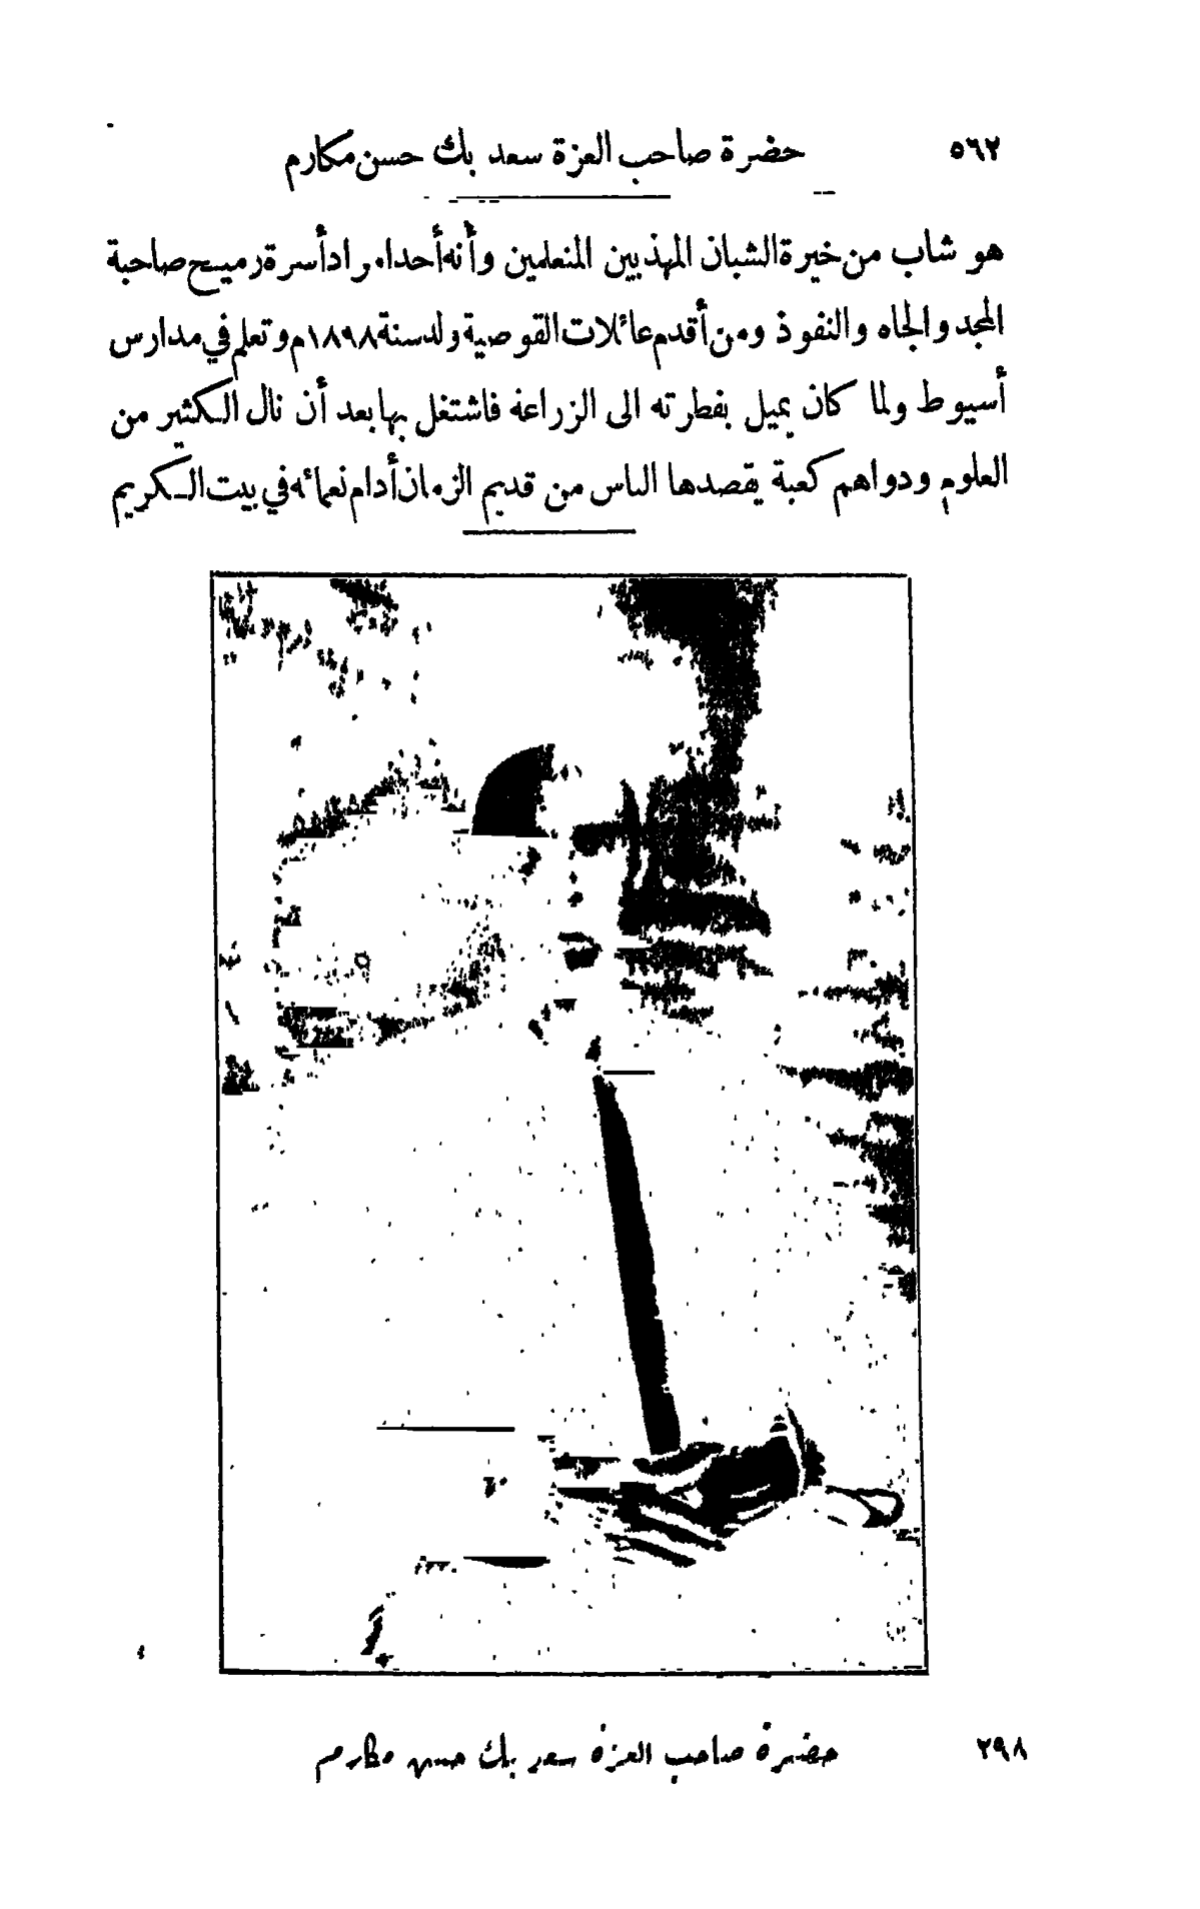 ٥٦٢
حضرة صاحب العزة سعد بك حسن مكارم
هو شاب من خيرة الشبان المهذبين المتعلمين وأنه أحد امراد أسرة رميح صاحبة
المجد والجاه والنفوذ ومن أقدم عائلات القوصية ولد سنة ١٨٩٨م وتعلم في مدارس
أسيوط ولما كان يميل بفطرته الى الزراعة فاشتغل بها بعد أن نال الكثير من
العلوم ودواهم كعبة يقصدها الناس من قديم الزمان أدام نعمائه في بيت الكريم
٢٩٨
حضرة صاحب العزة سعد بك حسن مكارم